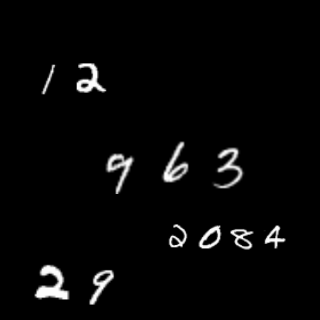 1 2
9 6 3
2 0 8 4
2 9